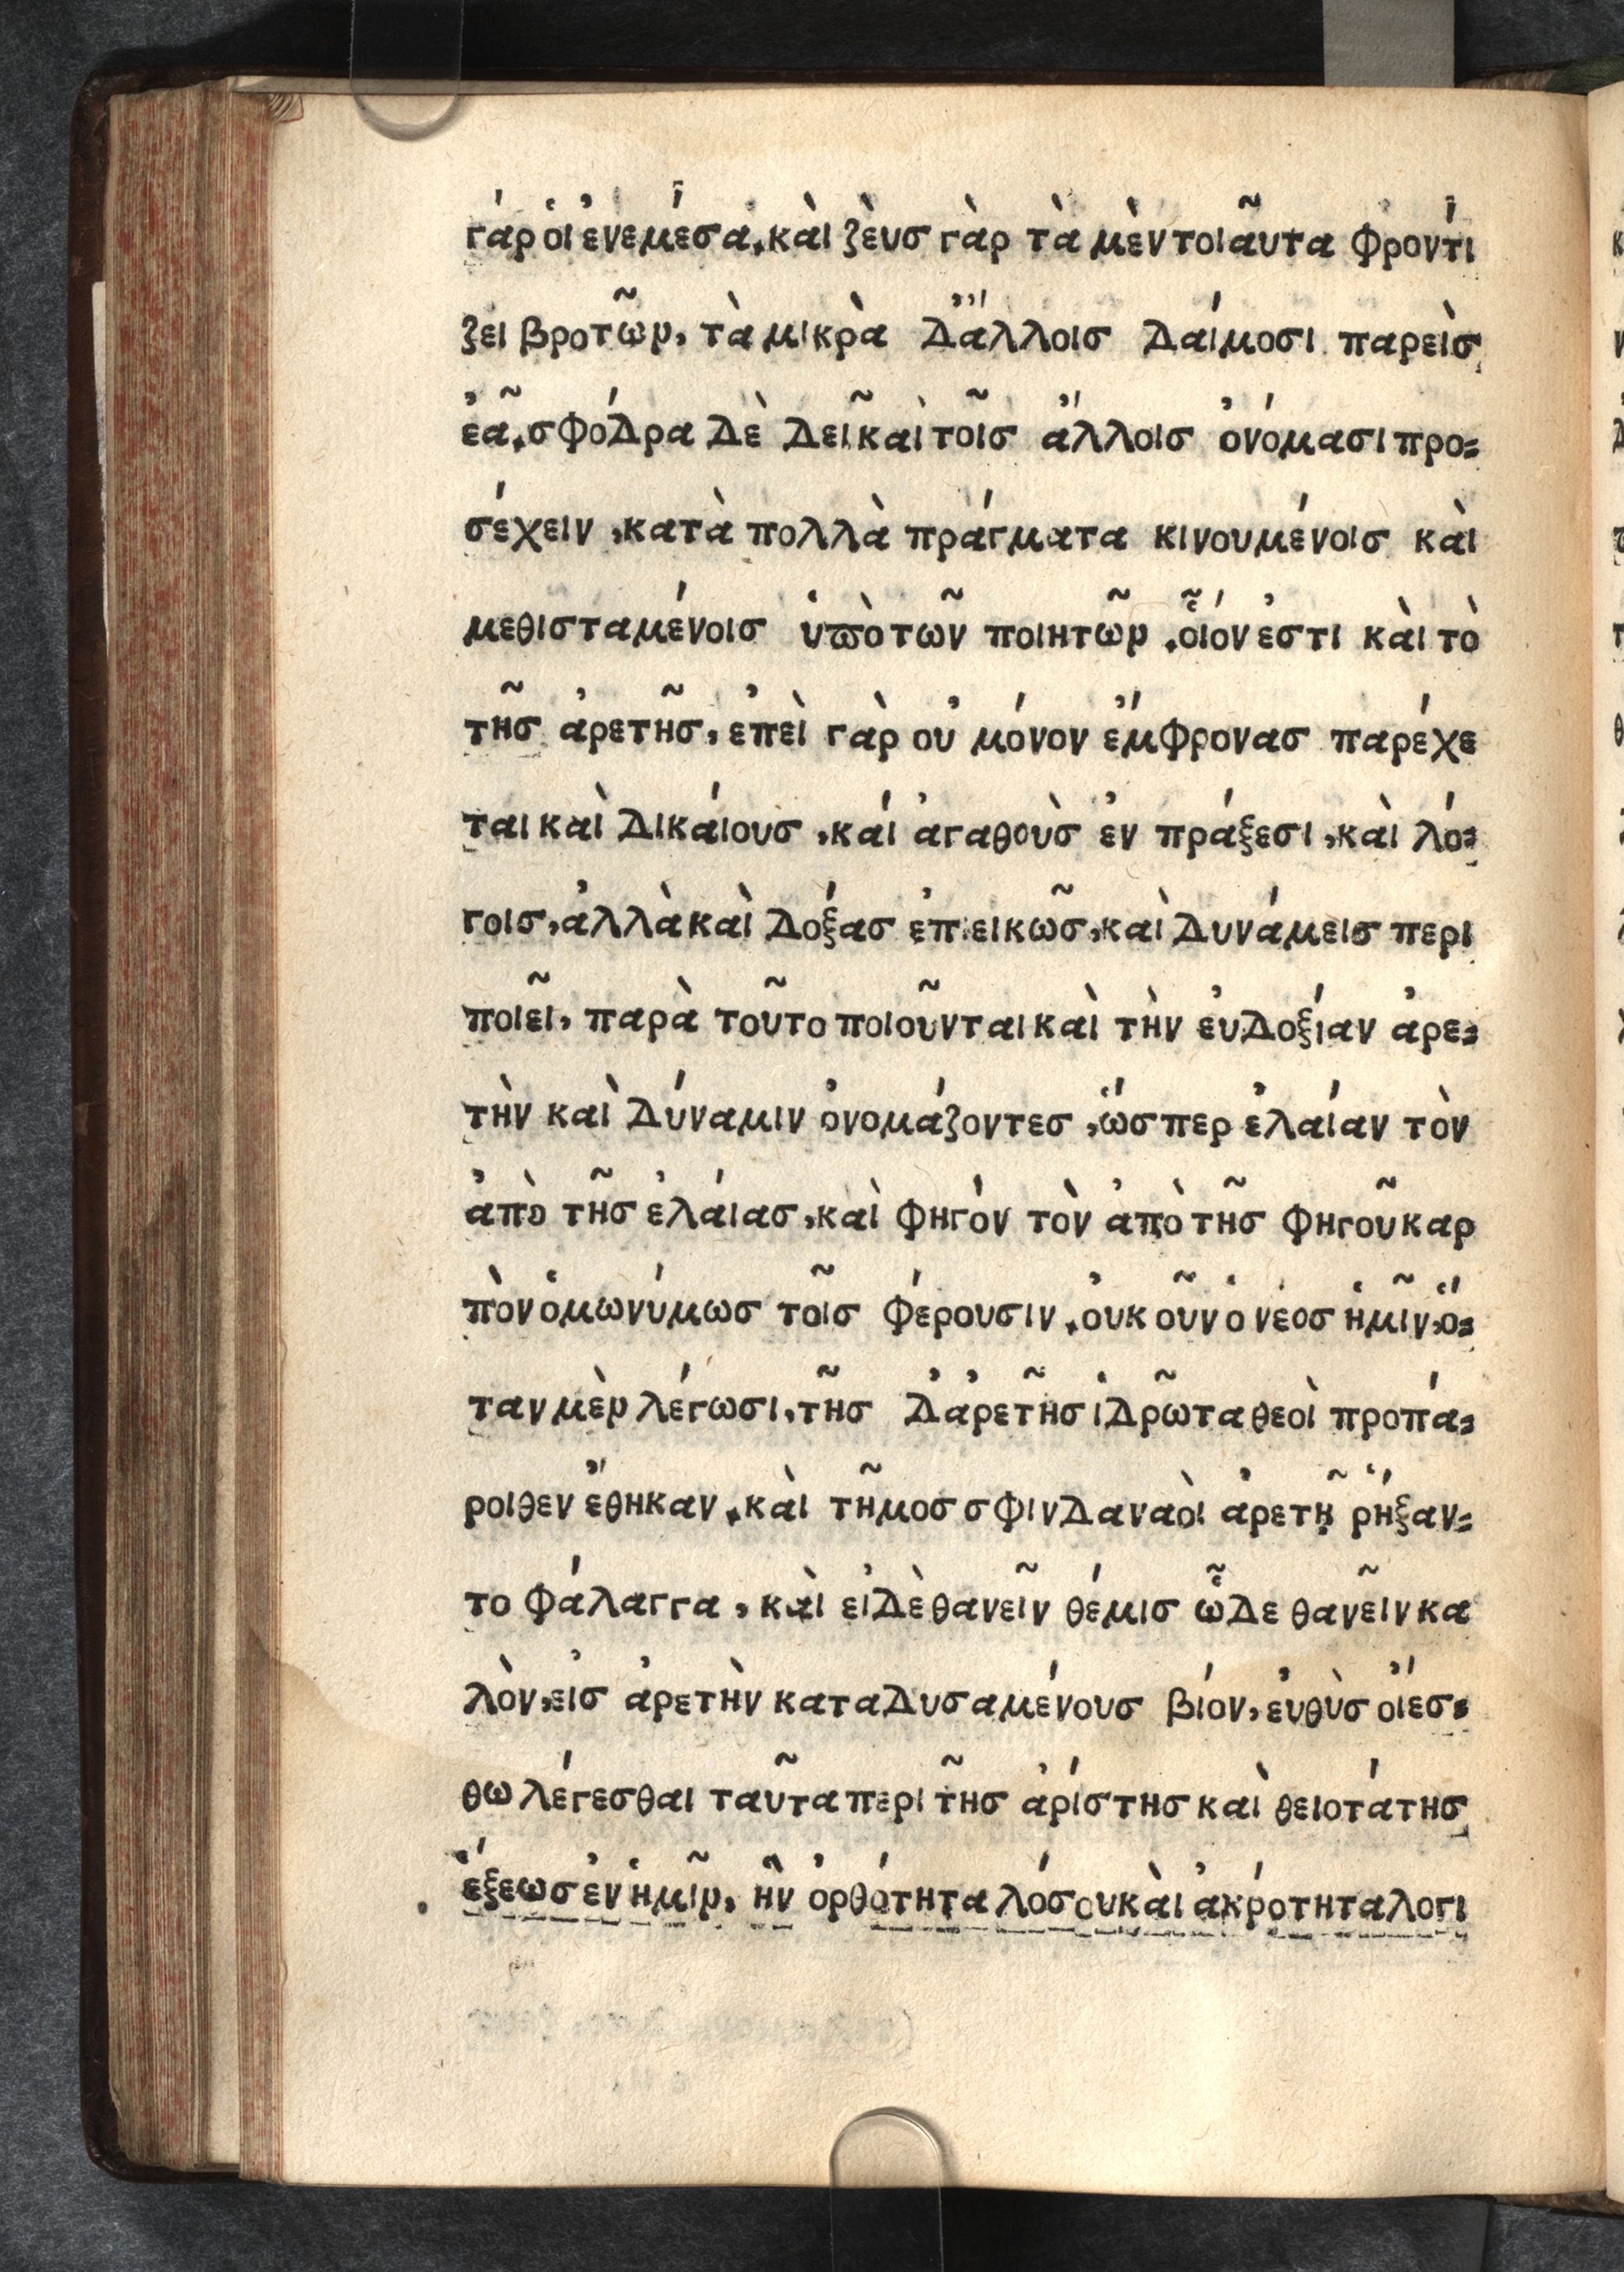 γάρ οἱ ἐνεμέσα. κὰι ζὲυσ γὰρ τὰ μὲν τοιᾶυτα φροντί
ζει βροτῶν, τὰ μικρὰ Δἄλλοισ Δάιμοσι παρεὶσ
ἐᾶ. σφόΔρα Δὲ Δεῖ κὰι τοῖσ ἄλλοισ ὀνόμασι προ=
σέχειν, κατὰ πολλὰ πράγματα κινουμένοισ κὰι
μεθισταμένοισ ὑϖὸ τῶν ποιητῶν. οἷόν ἐστι κὰι τὸ
τῆσ ἀρετῆσ, ἐπεὶ γὰρ οὐ μόνον ἔμφρονασ παρέχε
ται καὶ Δικάιουσ, κάι ἀγαθοὺσ ἐν πράξεσι, κὰι λό=
γοισ, ἀλλὰ καὶ Δόξασ ἐπιεικῶσ, καὶ Δυνάμεισ περι
ποιεῖ, παρὰ τοῦτο ποιοῦνται καὶ τὴν ἐυΔοξίαν ἀρε=
τὴν καὶ Δύναμιν ὀνομάζοντεσ, ὥσπερ ἐλαίαν τὸν
ἀπὸ τῆσ ἐλάιασ, κὰι φηγὸν τὸν ἀπὸ τῆσ φηγοῦ καρ
πὸν ὁμωνύμωσ τοῖσ φέρουσιν. ὀυκ οῦν ὁ νέοσ ἡμῖν, ὅ=
ταν μὲν λέγωσι, τῆσ Δ̓ἀρετῆσ ἱΔρῶτα θεοὶ προπά=
ροιθεν ἔθηκαν. κὰι τῆμοσ σφιν Δαναὸι ἀρετῆ ῥήξαν=
το φάλαγγα, κὰι εἰΔὲ θανεῖν θέμισ ὧΔε θανεῖν κα
λὸν, εἰσ ἀρετὴν καταΔυσαμένουσ βίον, ἐυθὺσ ὄιεσ=
θω λέγεσθαι ταῦτα περὶ τῆσ ἀρίστησ καὶ θειοτάτησ
ἕξεωσ ἐν ἡμῖν, ἣν ὀρθότητα λόσου κὰι ἀκρότητα λογι